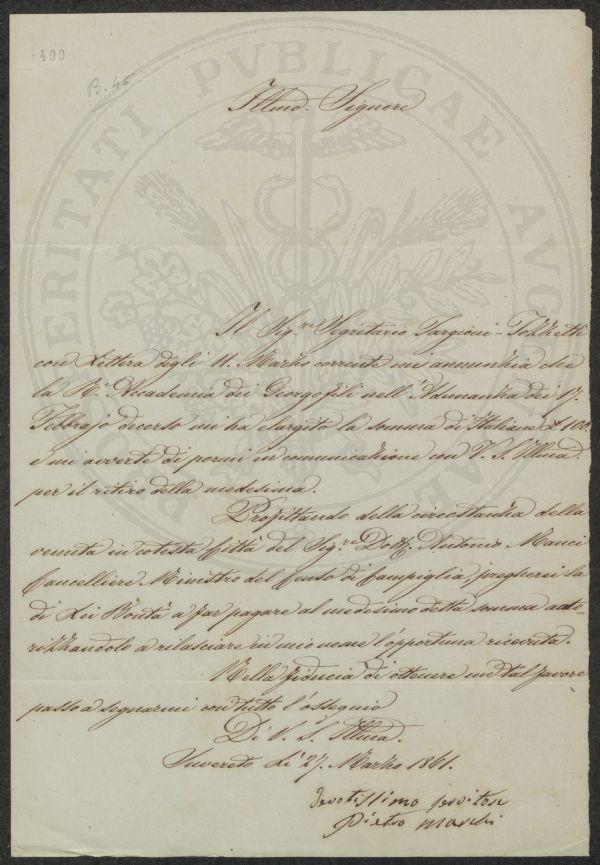 499
B. 45
Illmo. Signore
Il Sig.re Segretario Targioni-Tozzetti
con Lettera degli 11. Marzo corrente mi annunzia che
la R. Accademia dei Georgofili nell'Adunanza dei 17.
Febbrajo decorso mi ha elargito la somma di Italiane £ 100.
e mi avverte di pormi in comunicazione con V. S. Illma.
per il ritiro della medesima.
Profittando della circostanza della
venuta in cotesta Città del Sig.re Dott. Antonio Manci
Cancelliere Ministro del Censo di Campiglia, pregherei la
di Lei Bontà a far pagare al medesimo detta somma auto-
rizzandolo a rilasciare in mio nome l'opportuna ricevuta.
Nella fiducia di ottenere un tal favore
passo a segnarmi con tutto l'ossequio
Di V. S. Illma.
Suvereto li 27. Marzo 1861.
devotissimo servitore
Pietro
POSTERITATI PVBLICAE AVG